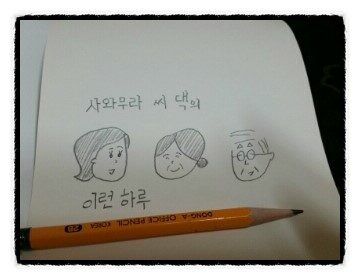 사와무라 씨 댁의
이런 하루
DONG-A OFFICE PENCIL
KOREA
2B